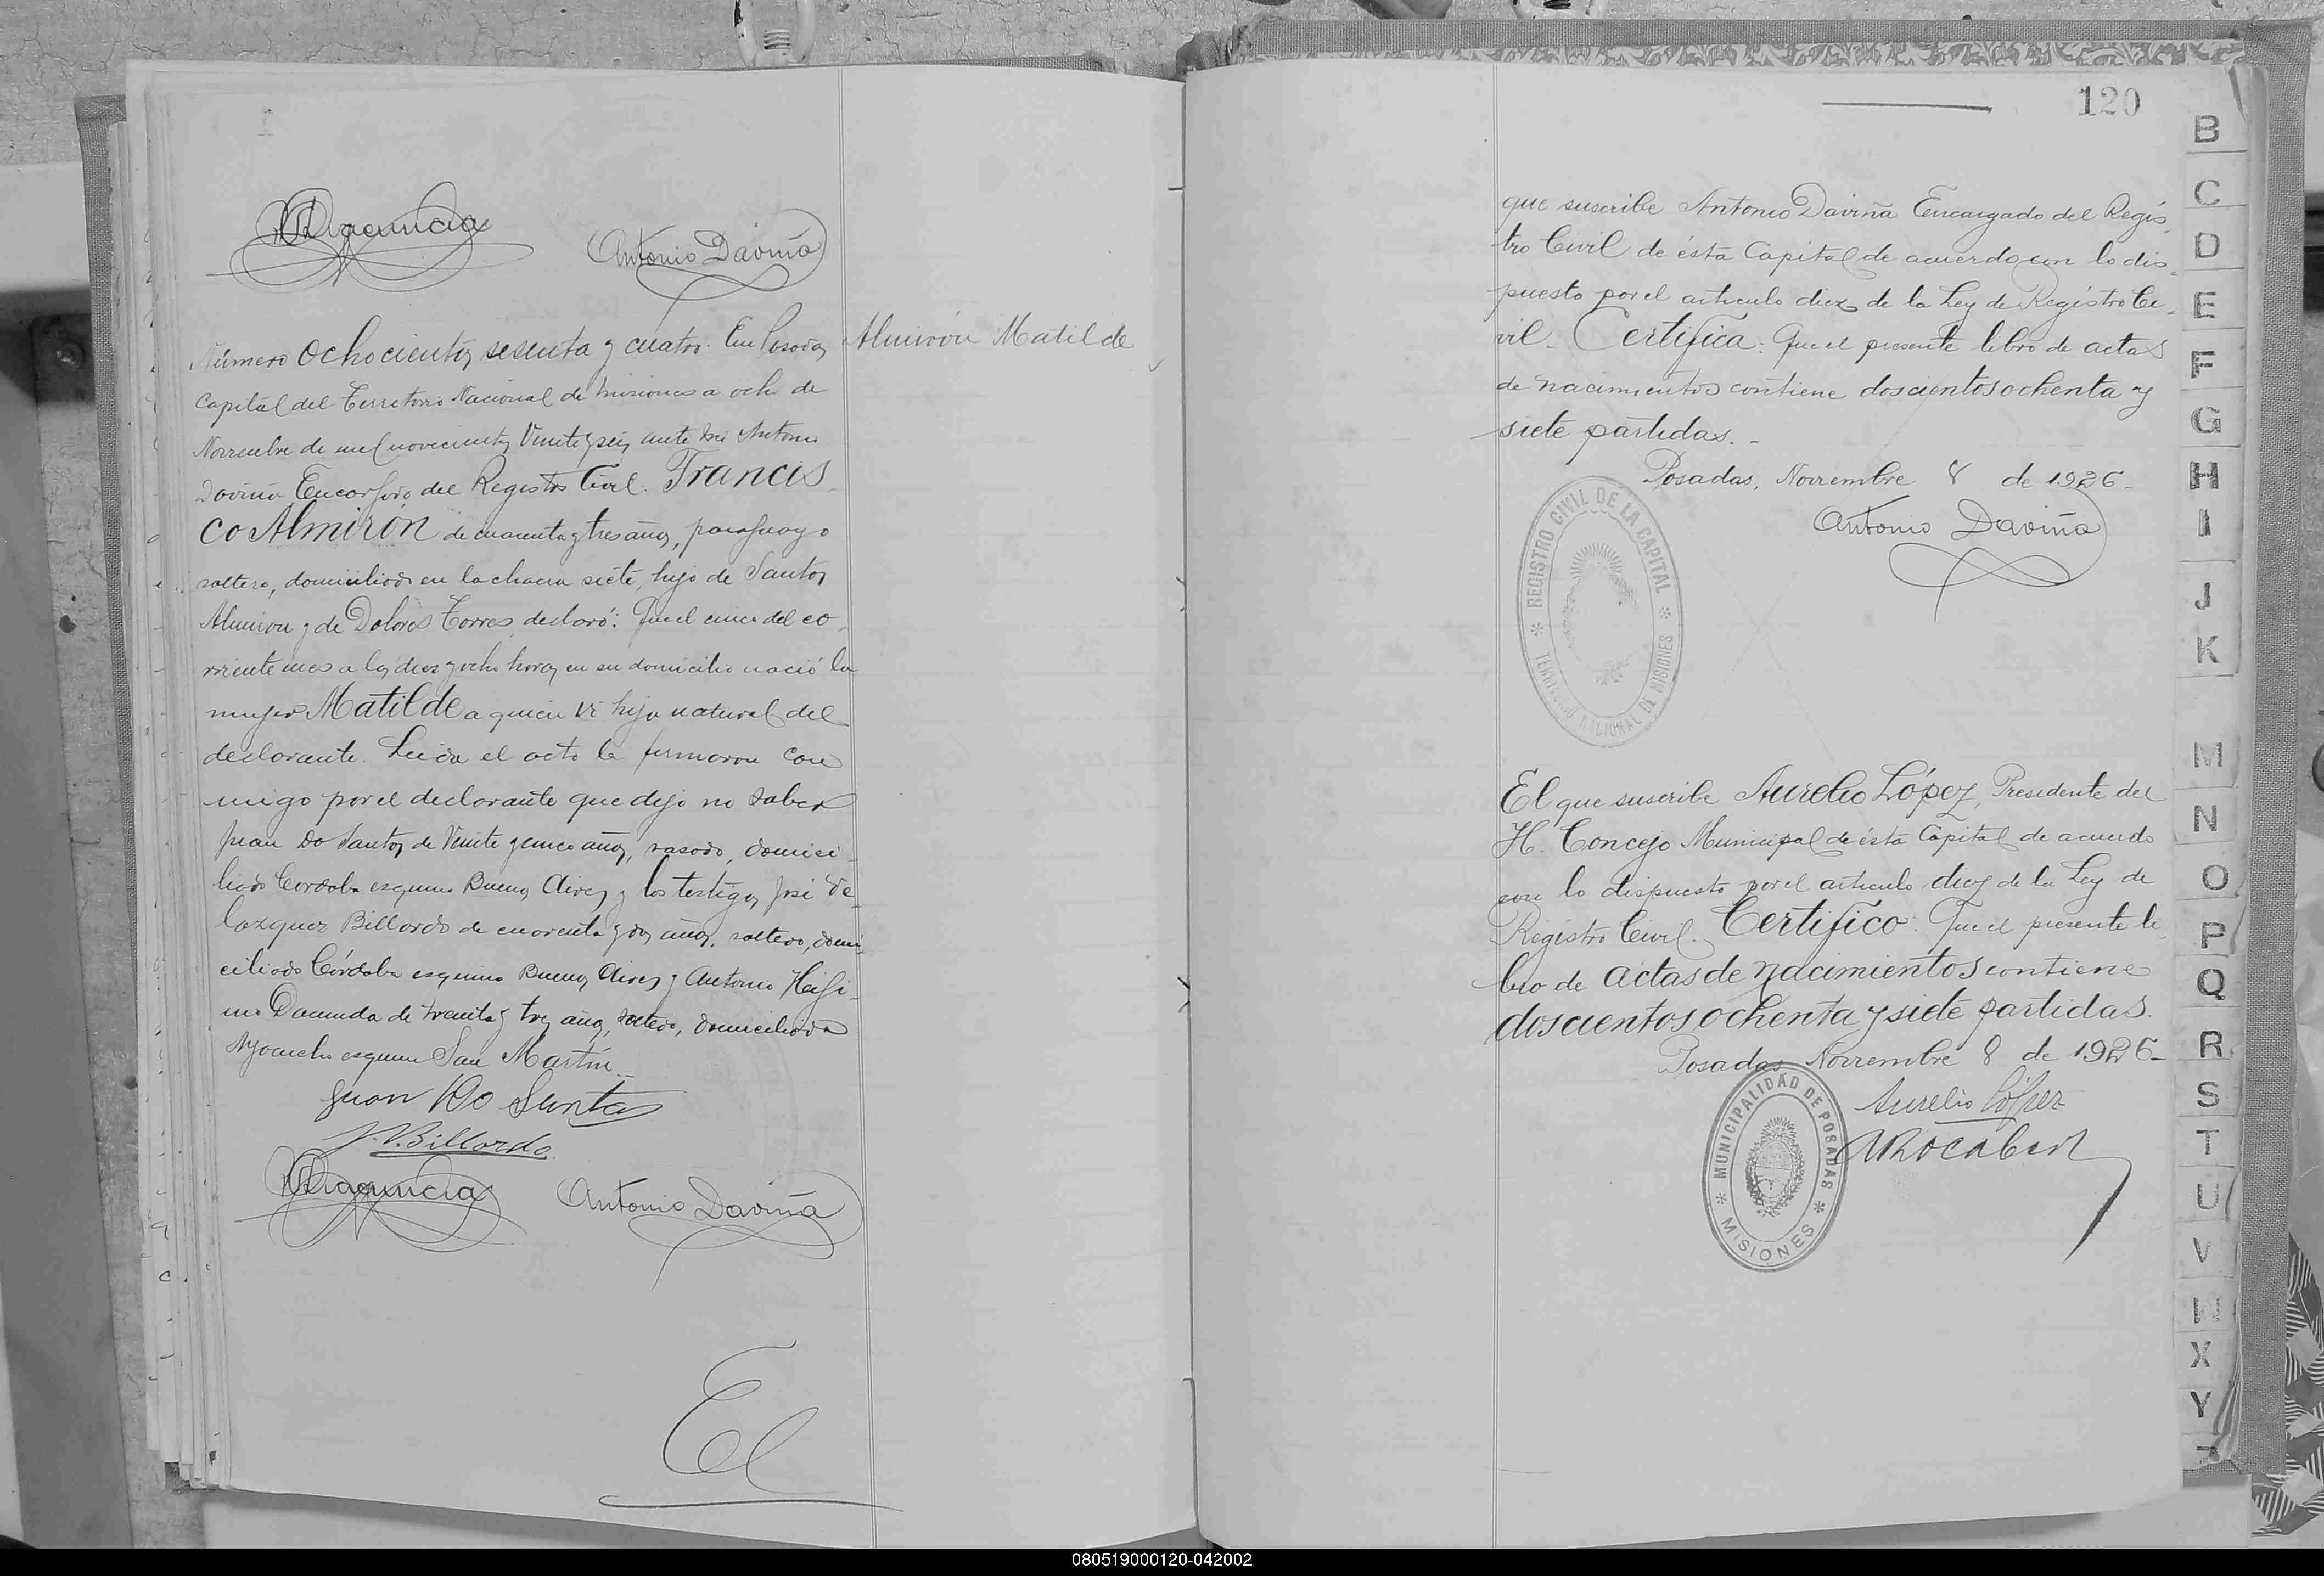 Antonio Daviña
Número Ochocientos sesenta y cuatro. En Posadas
Capital del Territorio Nacional de Misiones a ocho de
Noviembre de mil novecientos Veinte y seis, ante mi Antonio
Daviña Encargado del Registro Civil. Francis
co Almirón de cuarenta y tres años, paraguayo
soltero, domiciliado en la chacra siete, hijo de Santos
Almiron y de Dolores Torres, declaró: Que el cinco del co
rriente mes a las diez y ocho horas en su domicilio nació la
mujer Matilde a quien vi hija natural del
declarante. Leida el acta la firmaron con
migo por el declarante que dijo no saber
Juan Do Santos de Veinte y cinco años, casado, domici
liado Cordoba esquina Buenos Aires y los testigos José Ve
lazquez Billordo de cuarenta y dos años, soltero, domi
ciliado Córdoba esquina Buenos Aires y Antonio Higi
no Dacunda de treinta y tres años, soltero, domiciliado
Ayacucho esquina San Martín.
Juan Do Santos
J. V. Billordo
Antonio Daviña
El
Almirón Matilde
120
que suscribe Antonio Daviña Encargado del Regis
tro Civil de ésta Capital de acuerdo con lo dis
puesto por el articulo diez de la Ley de Registro Ci
vil. Certifica: Que el presente libro de actas
de nacimientos contiene doscientos ochenta y
siete partidas.-
Posadas, Noviembre 8 de 1926-
Antonio Daviña
REGISTRO CIVIL DE LA CAPITAL
TERRITORIO NACIONAL DE MISIONES
El que suscribe Aurelio López, Presidente del
H. Concejo Municipal de ésta Capital de acuerdo
con lo dispuesto por el articulo diez de la Ley de
Registro Civil. Certifico: Que el presente li
bro de actas de nacimientos contiene
doscientos ochenta y siete partidas.
Posadas Noviembre 8 de 1926-
Aurelio López
MUNICIPALIDAD DE POSADAS
MISIONES
B
C
D
E
F
G
H
I
J
K
M
N
O
P
Q
R
S
T
U
V
X
Y
080519000120-042002